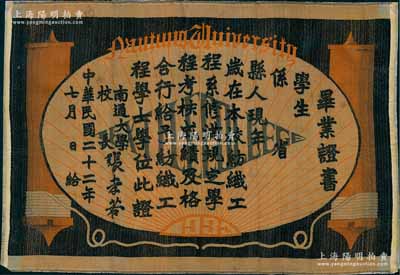 上海陽明拍賣
Nantung University
畢業證書
學生
係 省
縣人現年
歲在本校紡織工
程系修滿規定學
程考核成績及格
合行給予紡織工
程學士學位此證
南通大學
校長張孝若
中華民國二十二年
七月 日給
1933
上海陽明拍賣